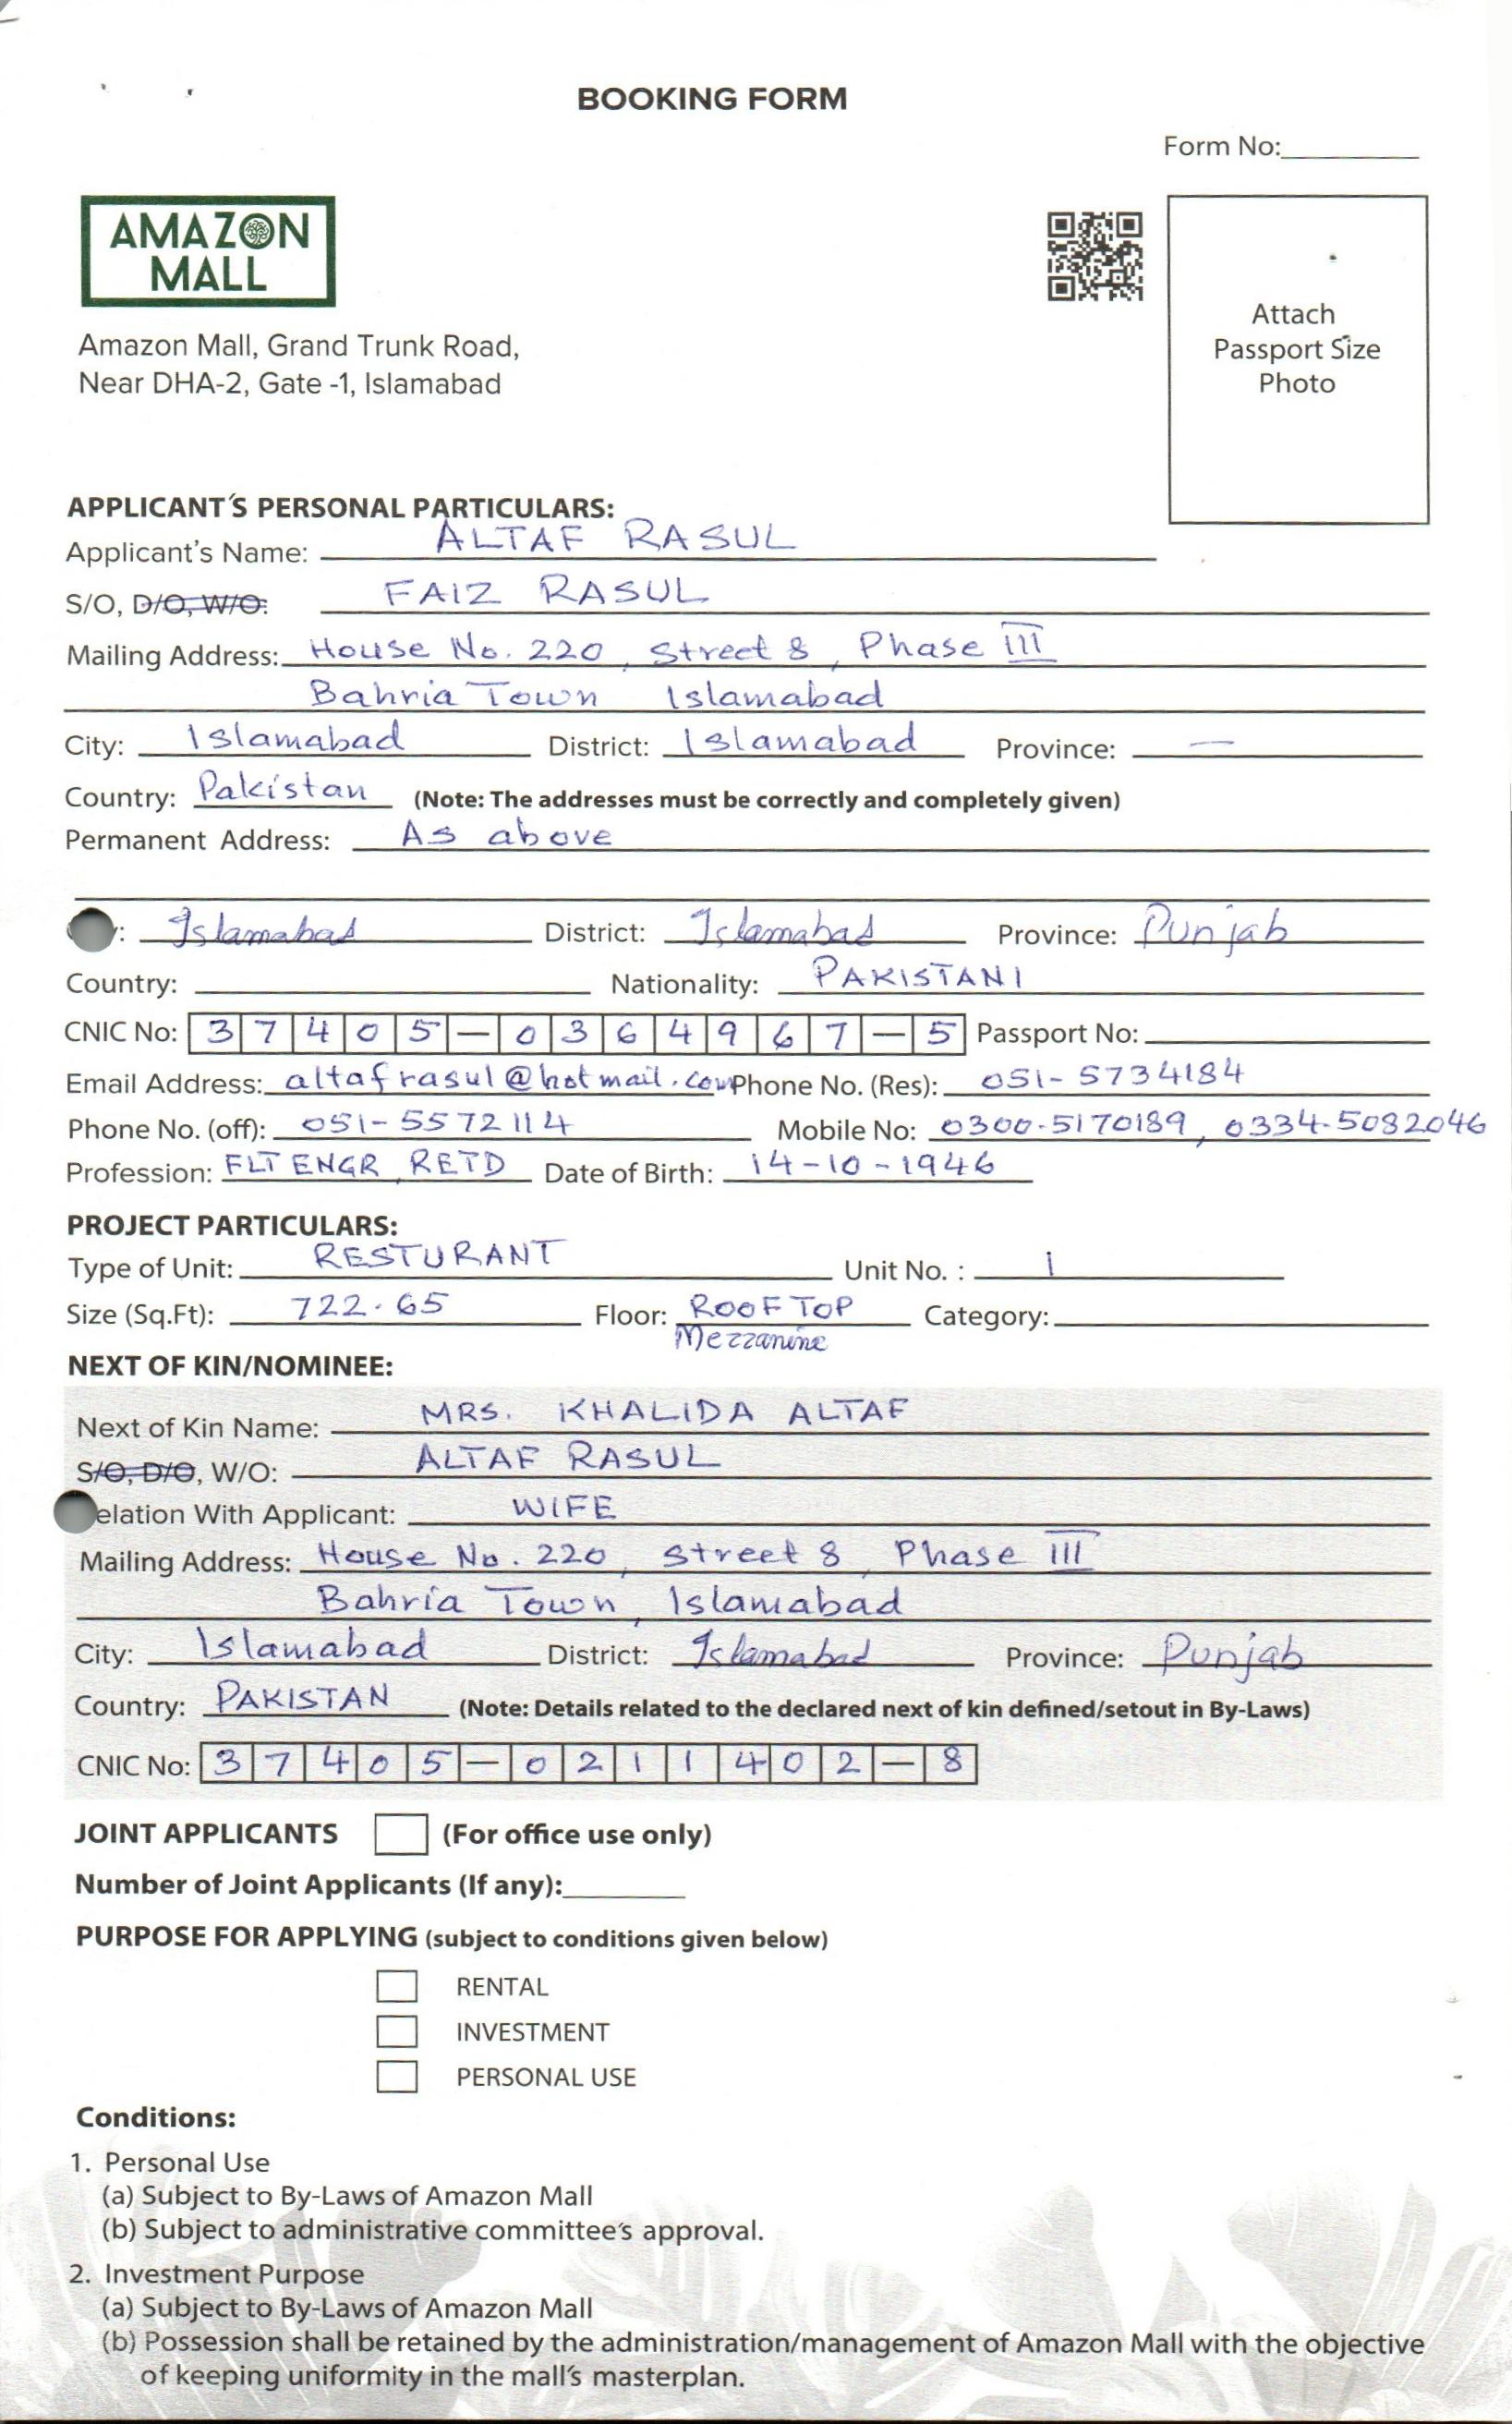 BOOKING FORM
Form No:
AMAZON
MALL
Amazon Mall, Grand Trunk Road,
Near DHA-2, Gate -1, Islamabad
Attach
Passport Size
Photo
APPLICANT'S PERSONAL PARTICULARS:
Applicant's Name: ALTAF RASUL
S/O, D/O, W/O: FAIZ RASUL
Mailing Address: House No. 220, Street 8, Phase III
Bahria Town Islamabad
City: Islamabad District: Islamabad Province: —
Country: Pakistan (Note: The addresses must be correctly and completely given)
Permanent Address: As above
: Islamabad District: Islamabad Province: Punjab
Country: Nationality: PAKISTANI
CNIC No: 37405-0364967-5 Passport No:
Email Address: altafrasul@hotmail.com Phone No. (Res): 051-5734184
Phone No. (off): 051-5572114 Mobile No: 0300-5170189, 0334-5082046
Profession: FLT ENGR, RETD Date of Birth: 14-10-1946
PROJECT PARTICULARS:
Type of Unit: RESTURANT Unit No. : 1
Size (Sq.Ft): 722.65 Floor: ROOF TOP Category:
Mezzanine
NEXT OF KIN/NOMINEE:
Next of Kin Name: MRS. KHALIDA ALTAF
S/O, D/O, W/O: ALTAF RASUL
elation With Applicant: WIFE
Mailing Address: House No. 220, Street 8, Phase III
Bahria Town, Islamabad
City: Islamabad District: Islamabad Province: Punjab
Country: PAKISTAN (Note: Details related to the declared next of kin defined/setout in By-Laws)
CNIC No: 37405-0211402-8
JOINT APPLICANTS (For office use only)
Number of Joint Applicants (If any):
PURPOSE FOR APPLYING (subject to conditions given below)
RENTAL
INVESTMENT
PERSONAL USE
Conditions:
1. Personal Use
(a) Subject to By-Laws of Amazon Mall
(b) Subject to administrative committee's approval.
2. Investment Purpose
(a) Subject to By-Laws of Amazon Mall
(b) Possession shall be retained by the administration/management of Amazon Mall with the objective
of keeping uniformity in the mall's masterplan.